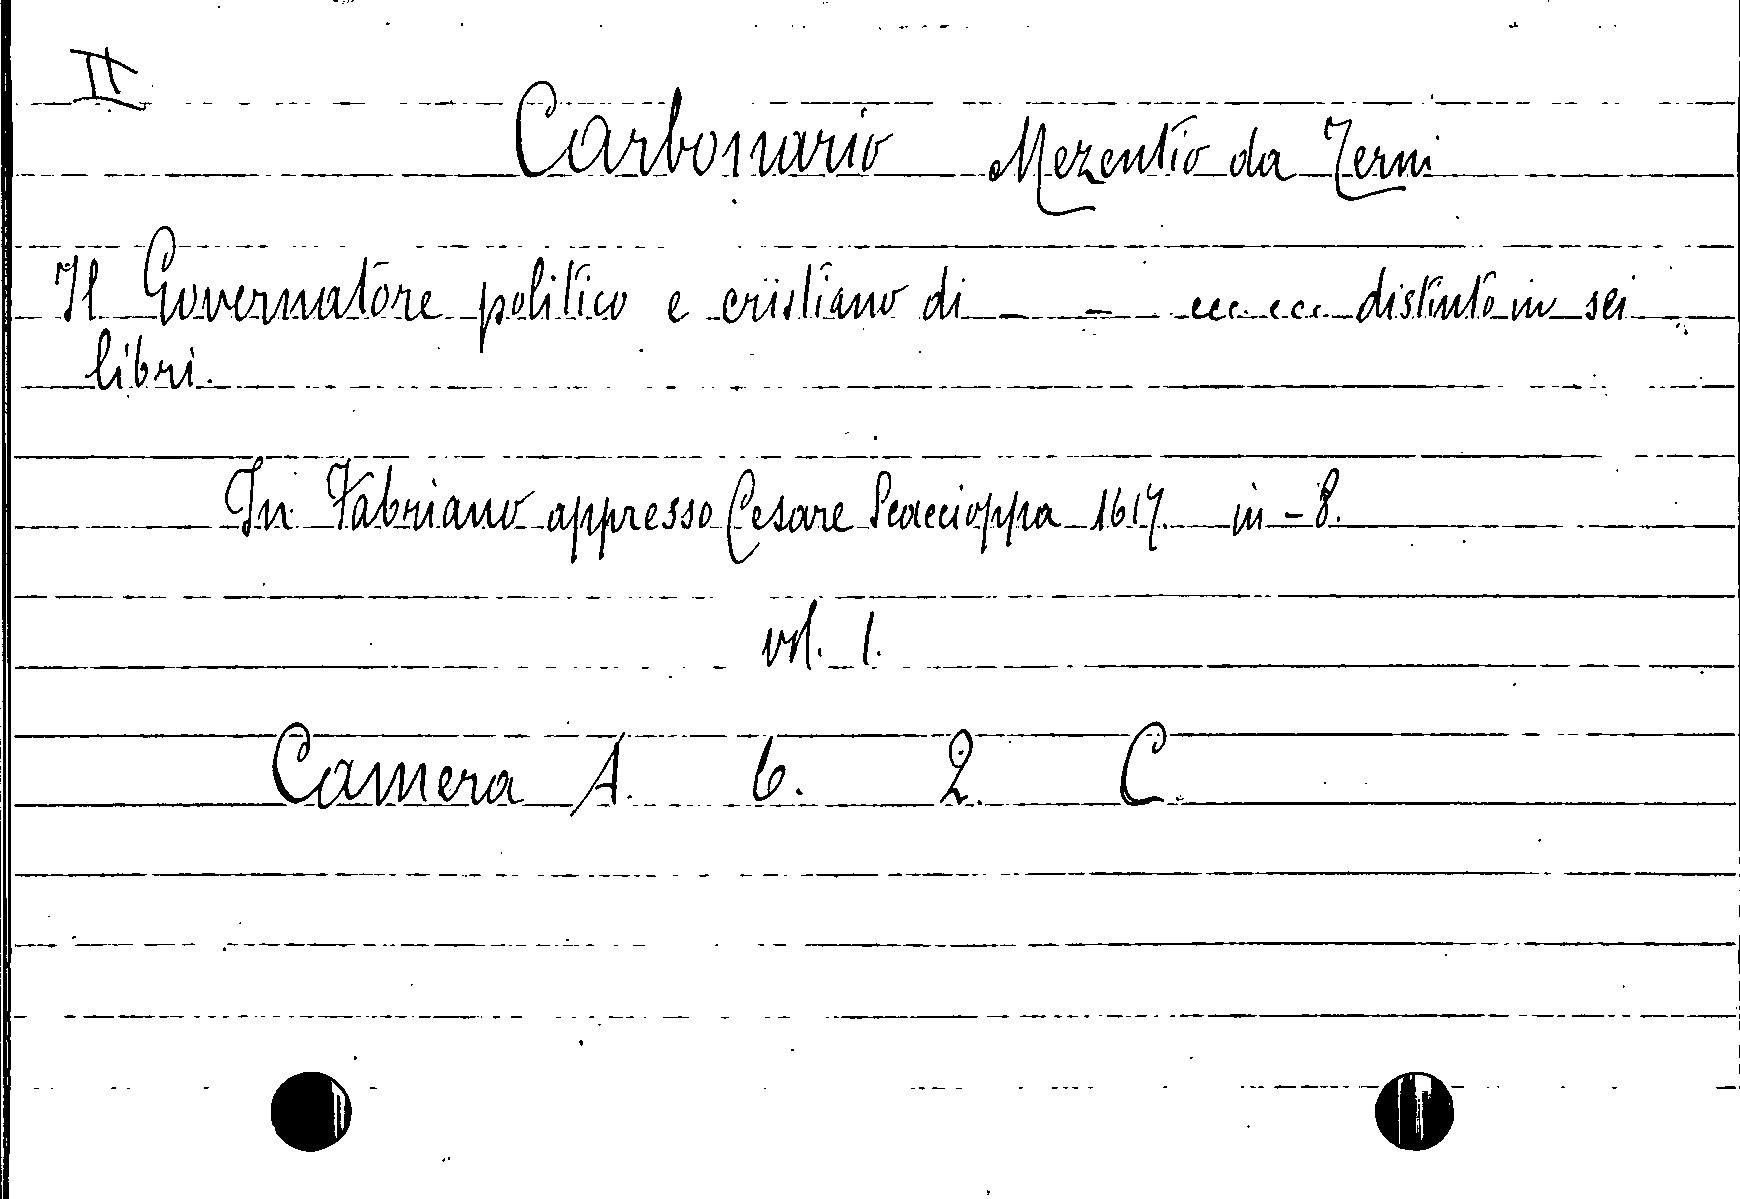 II
Carbonario Mezentio da Terni
Il Governatore politico e cristiano di _ _ ecc. ecc. distinto in sei
libri.
In Fabriano appresso Cesare Scaccioppa 1617. in-8.
vol. 1.
Camera A. 6. 2. C.